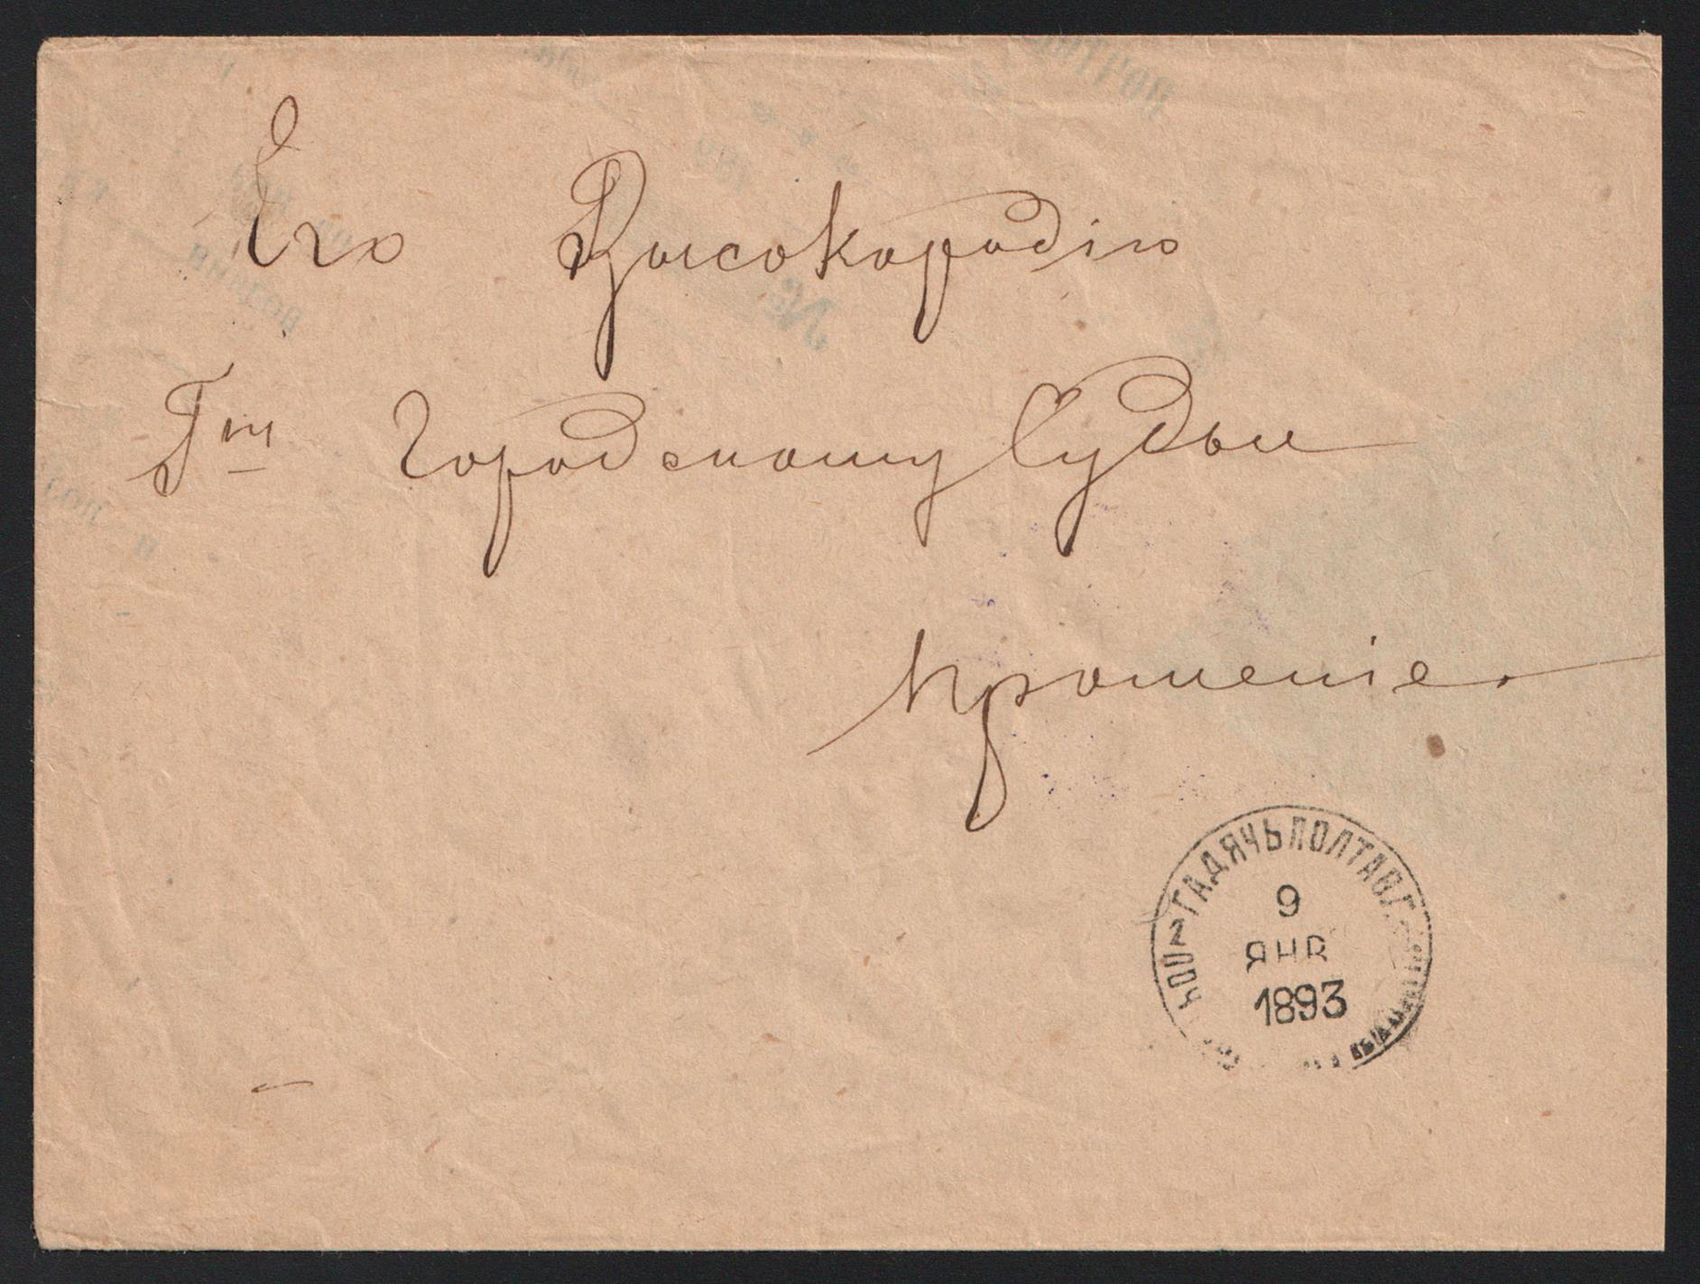 Его Высокородію
Гну Городскому Судьи
прошеніе.
ГАДЯЧЬ ПОЛТАВ. Г.
9
ЯНВ
1893